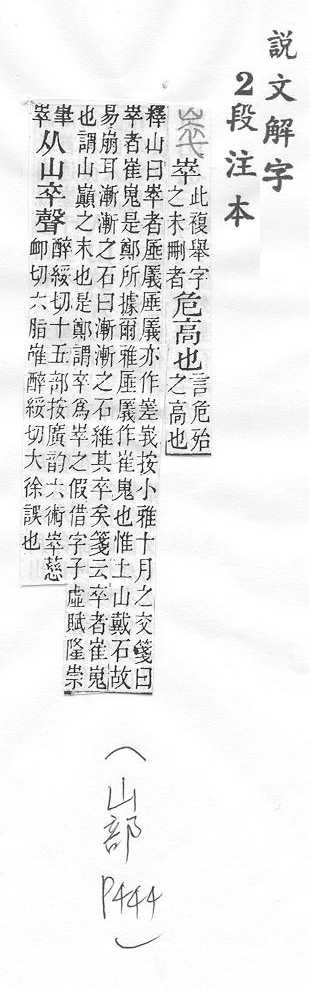 説文解字
2段注本
崒 此複舉字之未刪者 危高也 言危殆之高也
釋山曰崒者厜㕒厜㕒亦作嵳峩按小雅十月之交箋曰
崒者崔嵬是鄭所據爾雅厜㕒作崔嵬也惟土山戴石故
易崩耳漸漸之石曰漸漸之石維其卒矣箋云卒者崔嵬
也謂山巔之末也是鄭謂卒爲崒之假借字子虛賦隆崇
嵂崒 从山卒聲 醉綏切十五部按廣韵六術崒慈卹切六脂嶉醉綏切大徐誤也
(山部
P444)